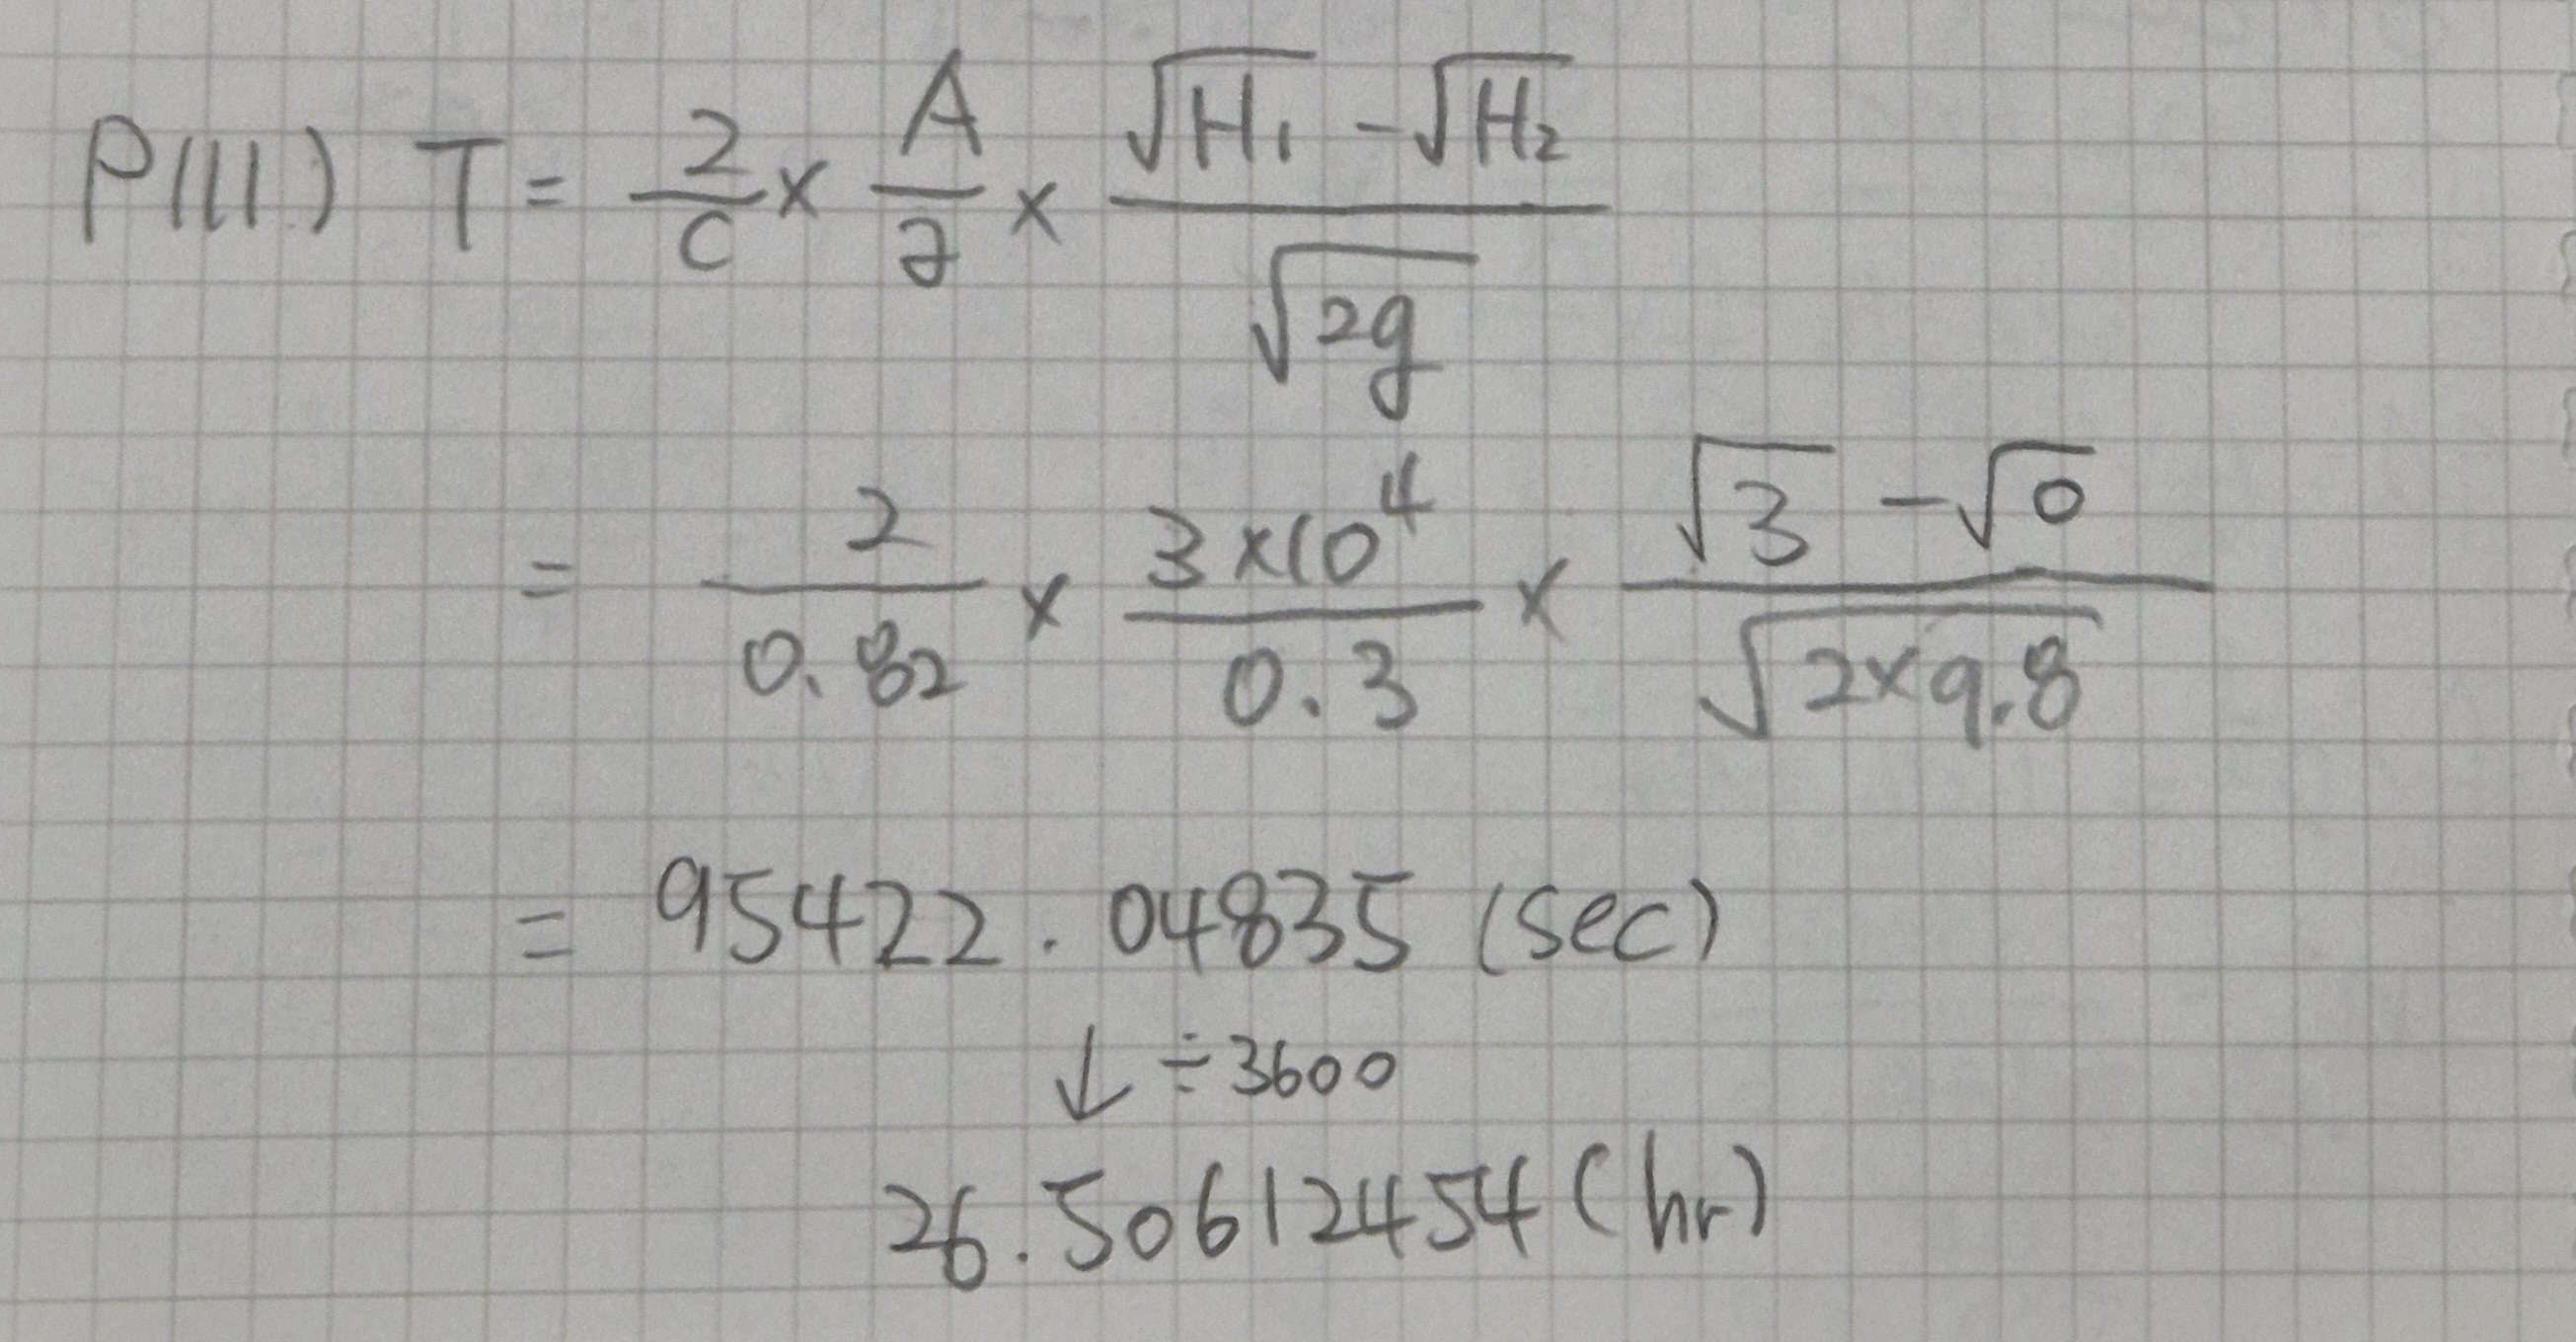 P111) T = 2/C × A/a × (√H₁ - √H₂)/√2g
= 2/0.82 × 3×10⁴/0.3 × (√3 - √0)/√2×9.8
= 95422.04835 (sec)
↓ ÷3600
26.50612454 (hr)